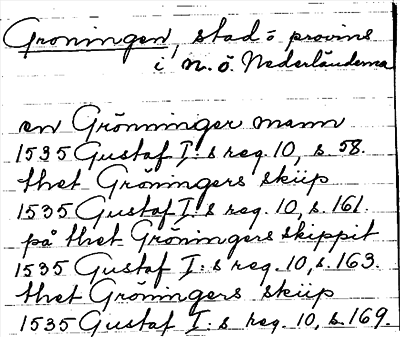 Groningen, stad o provins
i n. ö. Nederländerna
en Grönninger mann
1535 Gustaf I:s reg. 10, s. 58.
thet Gröningers skiip
1535 Gustaf I:s reg. 10, s. 161.
på thet Gröningers skippit
1535 Gustaf I:s reg. 10, s. 163.
thet Gröningers skiip
1535 Gustaf I:s reg. 10, s. 169.